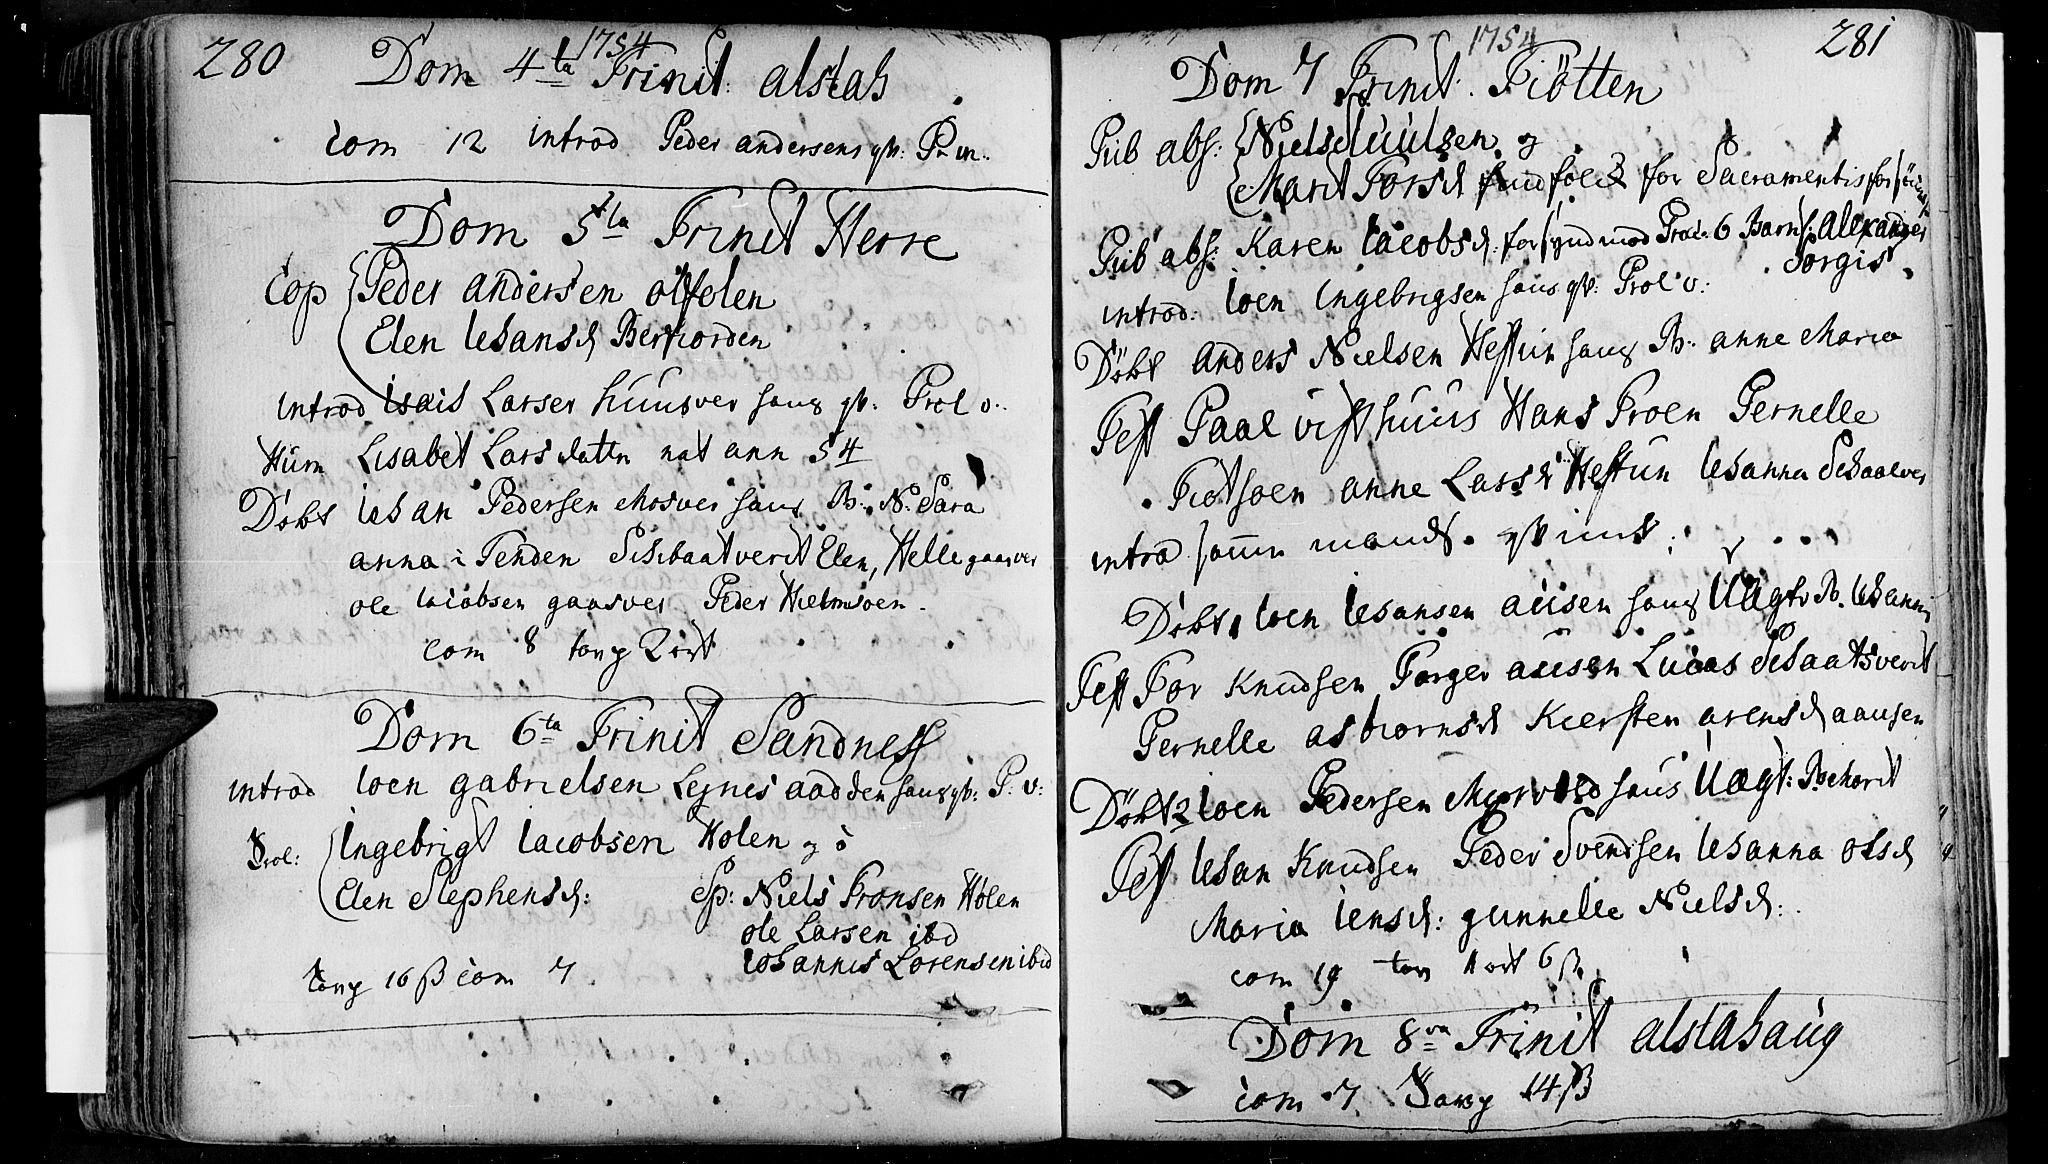 280
1754
Dom 4ta Trinit: alstah
com 12 introd Peder andersens qv: Pr. v.
Dom 5ta Trinit Herre
Cop Peder andersen olfelen
Elen Iohansd Berfiorden
introd isais Larsen huusver hans qv. Prol v.
Hum Lisabet Larsdatter nat ann 54
Døbt Iohan Pedersen Mosver hans B. N. Sara
anna i Tenden Elen, Helle gaasver
ole Iacobsen gaasver Peder Hielmsoen.
com 8 tavg 2 ort
Dom 6ta Trinit Sandness
introd Ioen gabrielsen Leines aadden hans qv: P. v:
Trol: Ingebrigt Iacobsen Holen og
Elen Stephensd: Sp: Niels Fronsen Holen
ole Larsen ibd
Iohannis Lorensen ibid
tavg 16 ß com 7.
281
1754
Dom 7 Trinit. Tiötten
Pub abs: Niels Iuulsen og
Marit Torsd for Sacramentis
Pub abs: Karen Iacobsd. for 6 Barnf: Alexander
Torgis.
introd: Ioen Ingebrigsen hans qv: Prol v:
Döbt anders Nielsen Hestun hans B. anne Maria
Test Paal visthuus Hans Proen Pernelle
Tiotsoen anne Larsd Hestun Iohanna Schaalver
introd samme mands qvinde:
Døbt 1 Ioen Iohansen ausen hans Uægt. B. Iohannis
Test Tor Knudsen Torger ausen Lucas Schaatsverit
Pernelle asbiornsd Kiersten arensd aausen
Döbt 2 Ioen Pedersen hans Uægt: B. Marit
Test Iohan Knudsen Peder Svendsen Iohanna olsd
Maria Iensd: gunnelle Nielsd:
com 19 tav 1 ort 6 ß
Dom 8va Trinit alstahaug
com 7 Tavg 14 ß